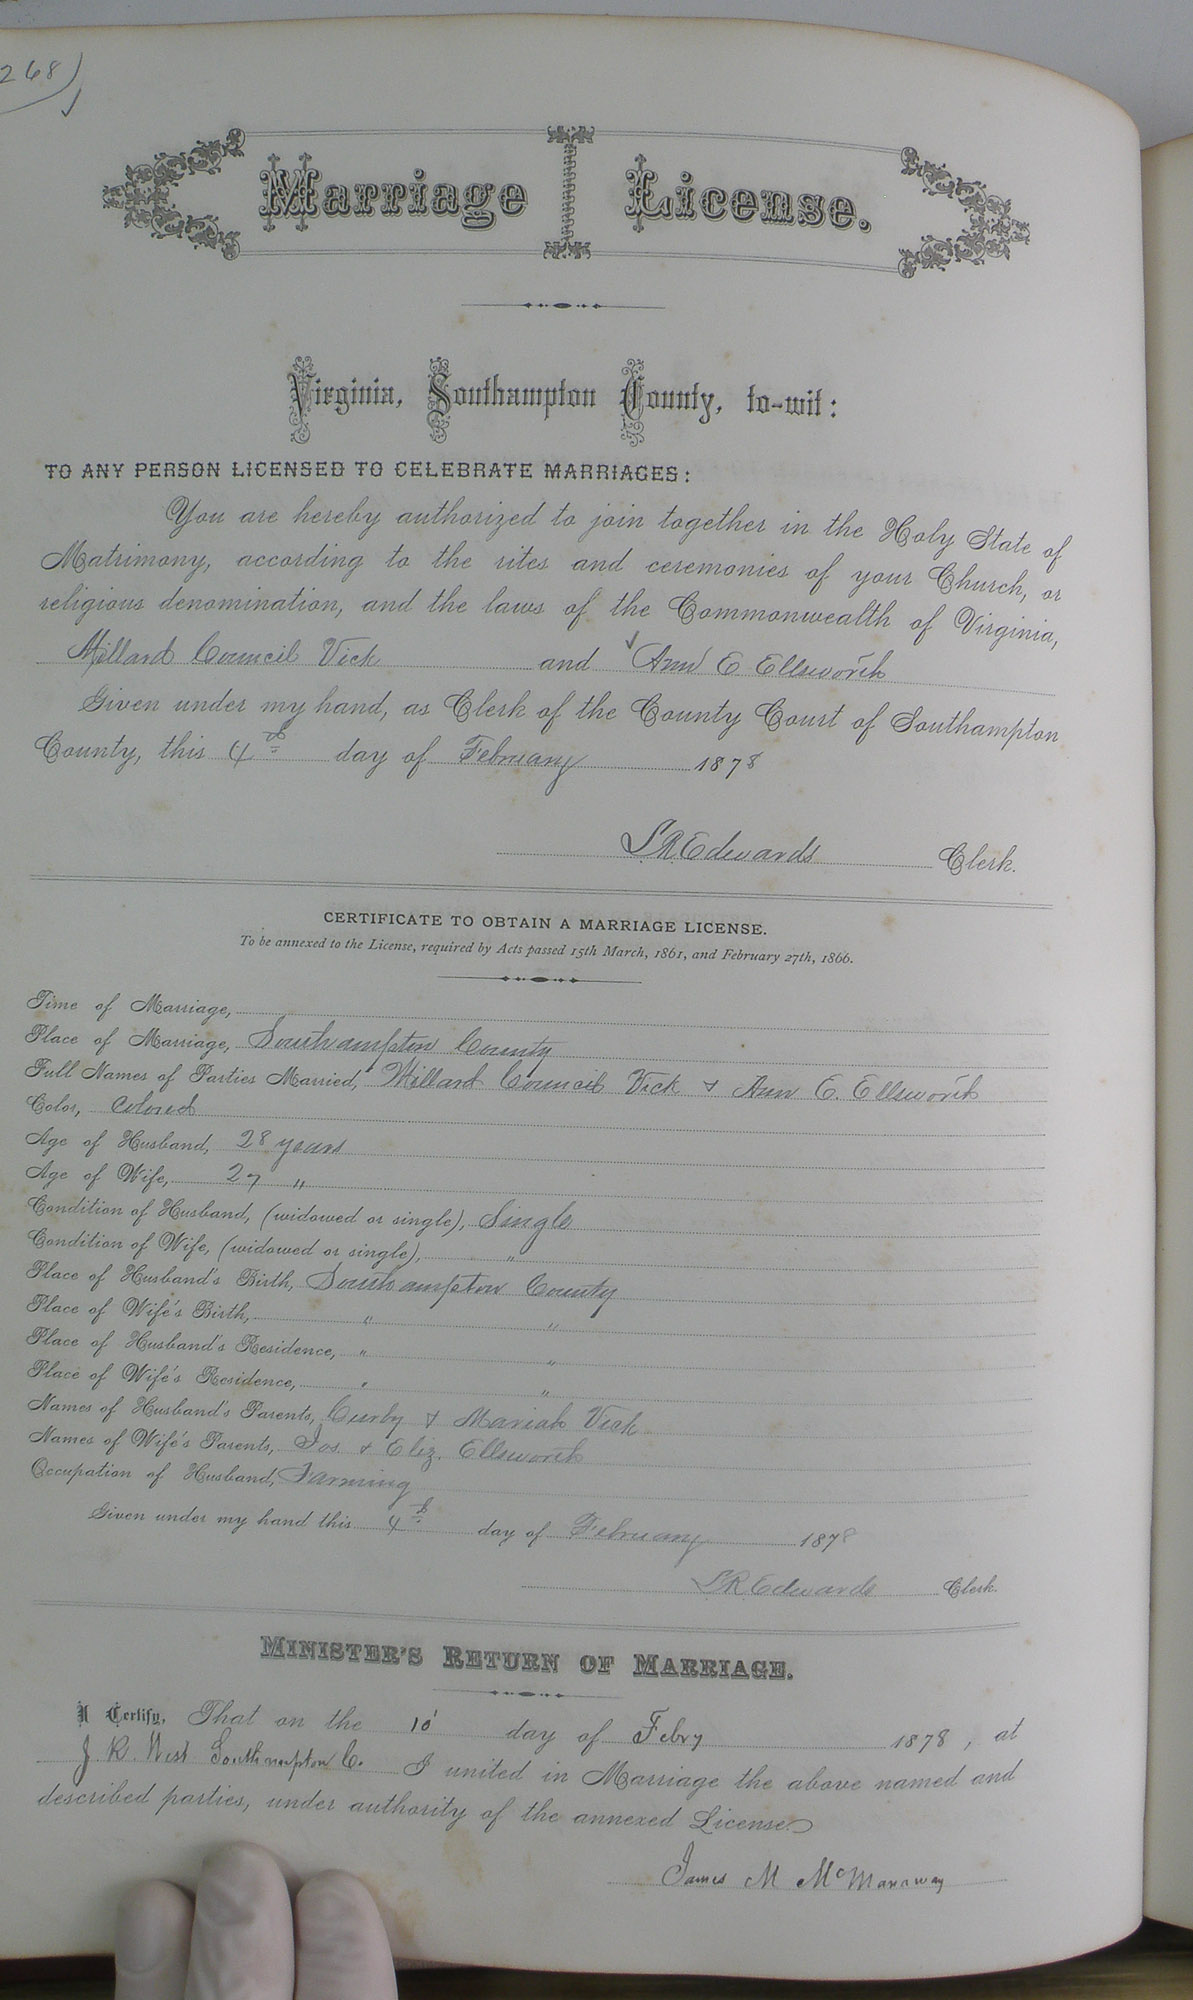 268)
Marriage License.
Virginia, Southampton County, to-wit:
TO ANY PERSON LICENSED TO CELEBRATE MARRIAGES:
You are hereby authorized to join together in the Holy State of
Matrimony, according to the rites and ceremonies of your Church, or
religious denomination, and the laws of the Commonwealth of Virginia,
Millard Council Vick and Ann E Ellsworth
Given under my hand, as Clerk of the County Court of Southampton
County, this 4th day of February 1878
L R Edwards Clerk.
CERTIFICATE TO OBTAIN A MARRIAGE LICENSE.
To be annexed to the License, required by Acts passed 15th March, 1861, and February 27th, 1866.
Time of Marriage,
Place of Marriage, Southampton County
Full Names of Parties Married, Millard Council Vick & Ann E. Ellsworth
Color, Colored
Age of Husband, 28 years
Age of Wife, 27 "
Condition of Husband, (widowed or single), Single
Condition of Wife, (widowed or single), "
Place of Husband's Birth, Southampton County
Place of Wife's Birth, " "
Place of Husband's Residence, " "
Place of Wife's Residence, " "
Names of Husband's Parents, Curby & Mariah Vick
Names of Wife's Parents, Jos & Eliz. Ellsworth
Occupation of Husband, Farming
Given under my hand this 4th day of February 1878
L R Edwards Clerk.
MINISTER'S RETURN OF MARRIAGE.
I Certify, That on the 10 day of Febry 1878, at
J. R. West Southampton C. I united in Marriage the above named and
described parties, under authority of the annexed License.
James M McManaway